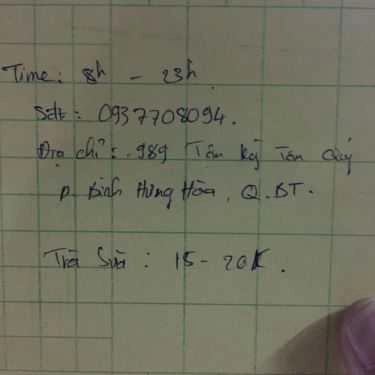 Time: 8h - 23h.
Sdt: 0937708094.
Địa chỉ: 989 Tân Kỳ Tân Quý
P. Bình Hưng Hòa, Q.BT.
Trà Sữa: 15 - 20K.